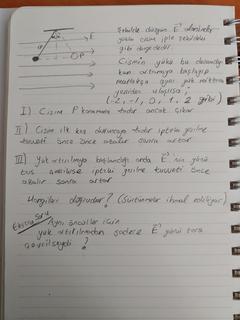 Şekilde düzgün E alanında
yüklü cisim iple şekildeki
gibi dengededir.
Cismin yükü bu durumdan
artmaya başlayıp
aynı yük miktarına
yeniden ulaşırsa;
(-2, -1, 0, 1, 2 gibi)
I) Cisim P konumuna kadar ancak çıkar
II) Cisim ilk kez duruncaya kadar ipteki gerilme
kuvveti önce azalır sonra artar
III) Yük artırılmaya başlandığı anda E nin yönü
ters çevrilirse ipteki gerilme kuvveti önce
azalır sonra artar
Hangileri doğrudur? (Sürtünmeler ihmal ediliyor)
Ekstra Soru
Aynı öncüller için
yük artırılmadan sadece E yönü ters
çevrilseydi?